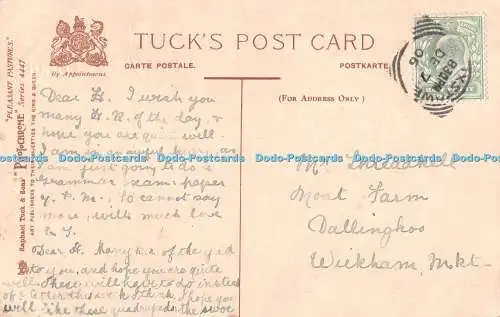 TUCK'S POST CARD
CARTE POSTALE. POSTKARTE.
By Appointment
(FOR ADDRESS ONLY)
"PLEASANT PASTURES." Series 4447
Raphael Tuck & Sons'
ART PUBLISHERS TO THEIR MAJESTIES THE KING & QUEEN.
Dear H. I wish you
many H. R. of the day, &
hope you are quite well.
I am in an awful hurry as
I am just going to do a
Grammar exam: paper
So cannot say
more, with much love
Dear H. Many h. r. of the y. d
to you, and hope you are quite
well. These will have to do instead
of a letter this week I think. I hope you
will like these quadrupeds
Moat Farm
Dallinghoo
Wickham Mkt.
Dodo-Postcards Dodo-Postcards Dodo-Postcards Dodo-Postcards Dodo-Postcards